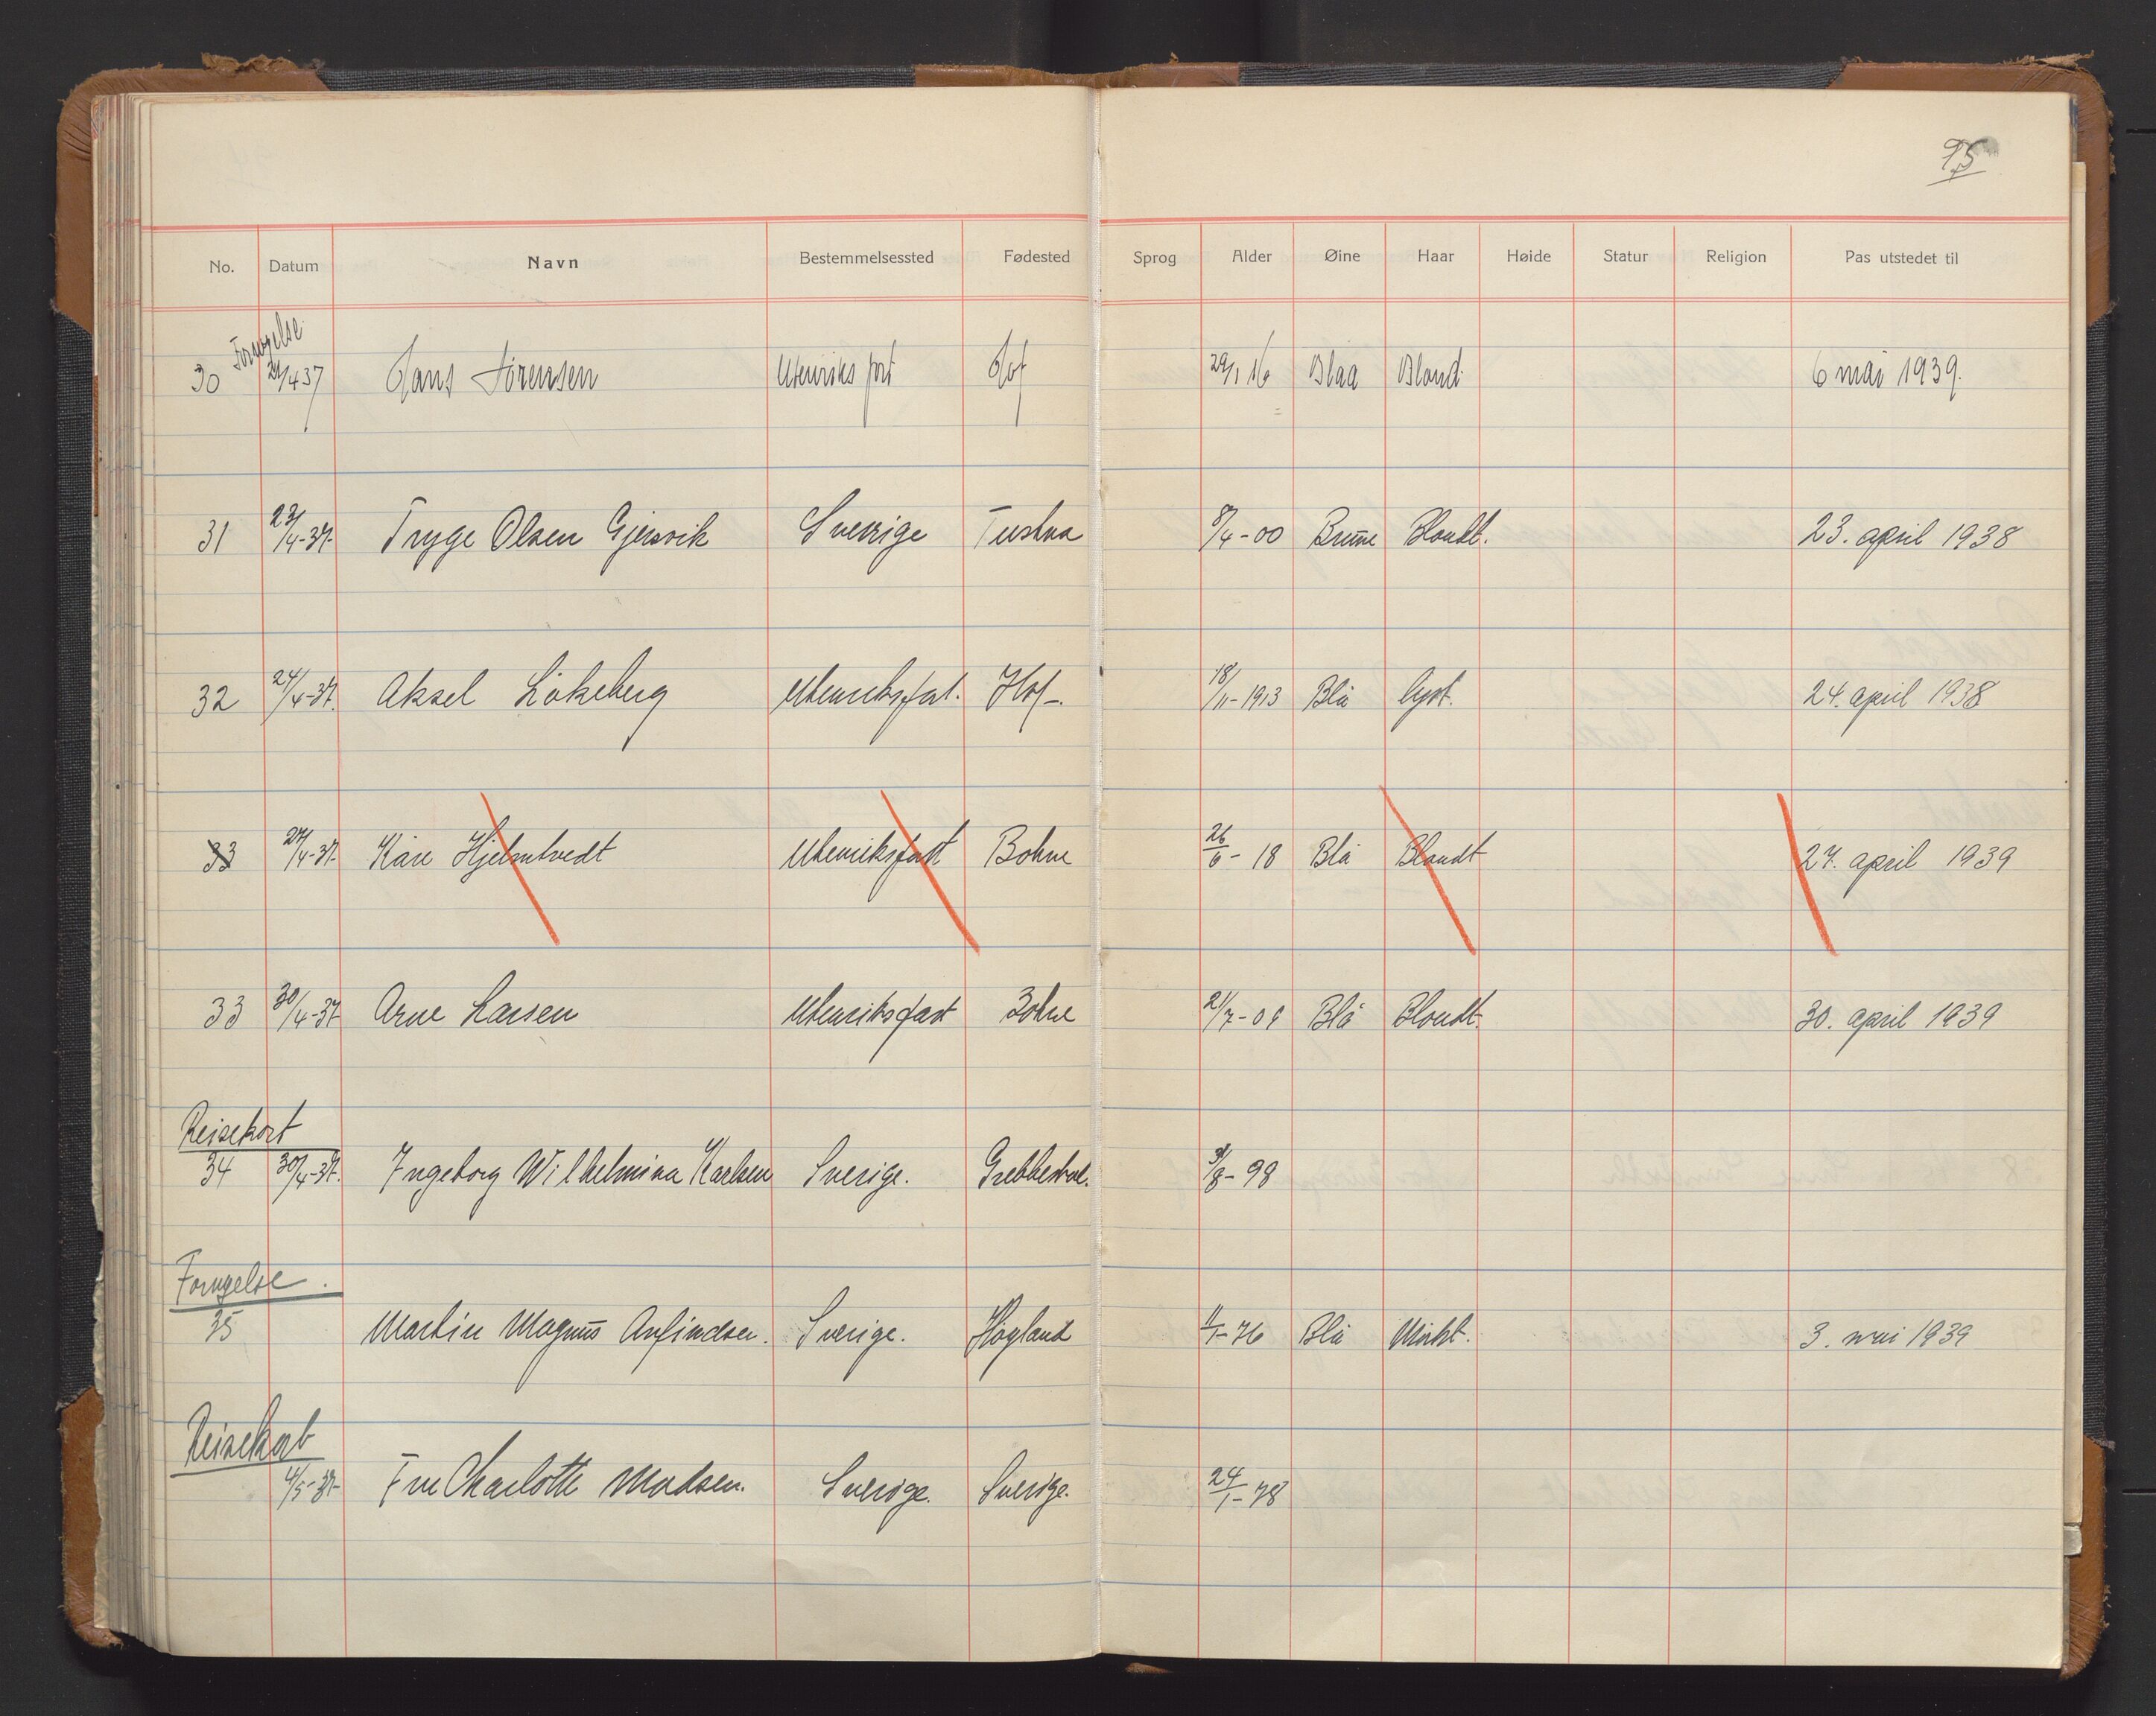 95
No. Datum Navn Bestemmelsessted Fødested Sprog Alder Øine Haar Høide Statur Religion Pas utstedet til
Fornyelse
30 21/4 37 Hans Sørensen Utenriks fart Hof 29/1 16 Blaa Blond. 6 mai 1939.
31 23/4-37. Tryge Olsen Gjersvik Sverige Tustna 8/4-00 Brune Blondt. 23. april 1938
32 24/4-37. Aksel Løkeberg Utenriksfart. Hof-. 18/11-1913 Blå lyst. 24. april 1938
33 27/4-37- Kåre Hjelmtvedt Utenriksfart Botne 26/6-18 Blå Blondt 27. april 1939
33 30/4-37- Arne Larsen Utenriksfart Botne 21/7-09 Blå Blondt. 30. april 1939
Reisekort
34 30/4-37. Ingeborg Wilhelmina Karlsen Sverige. 3/8-98
Fornyelse.
35 Martin Magnus Anfindsen. Sverige. Høyland 11/1-76 Blå Mørkt. 3. mai 1939
Reisekort
4/5-37- Fru Charlotte Madsen. Sverige. Sverige. 24/1-78